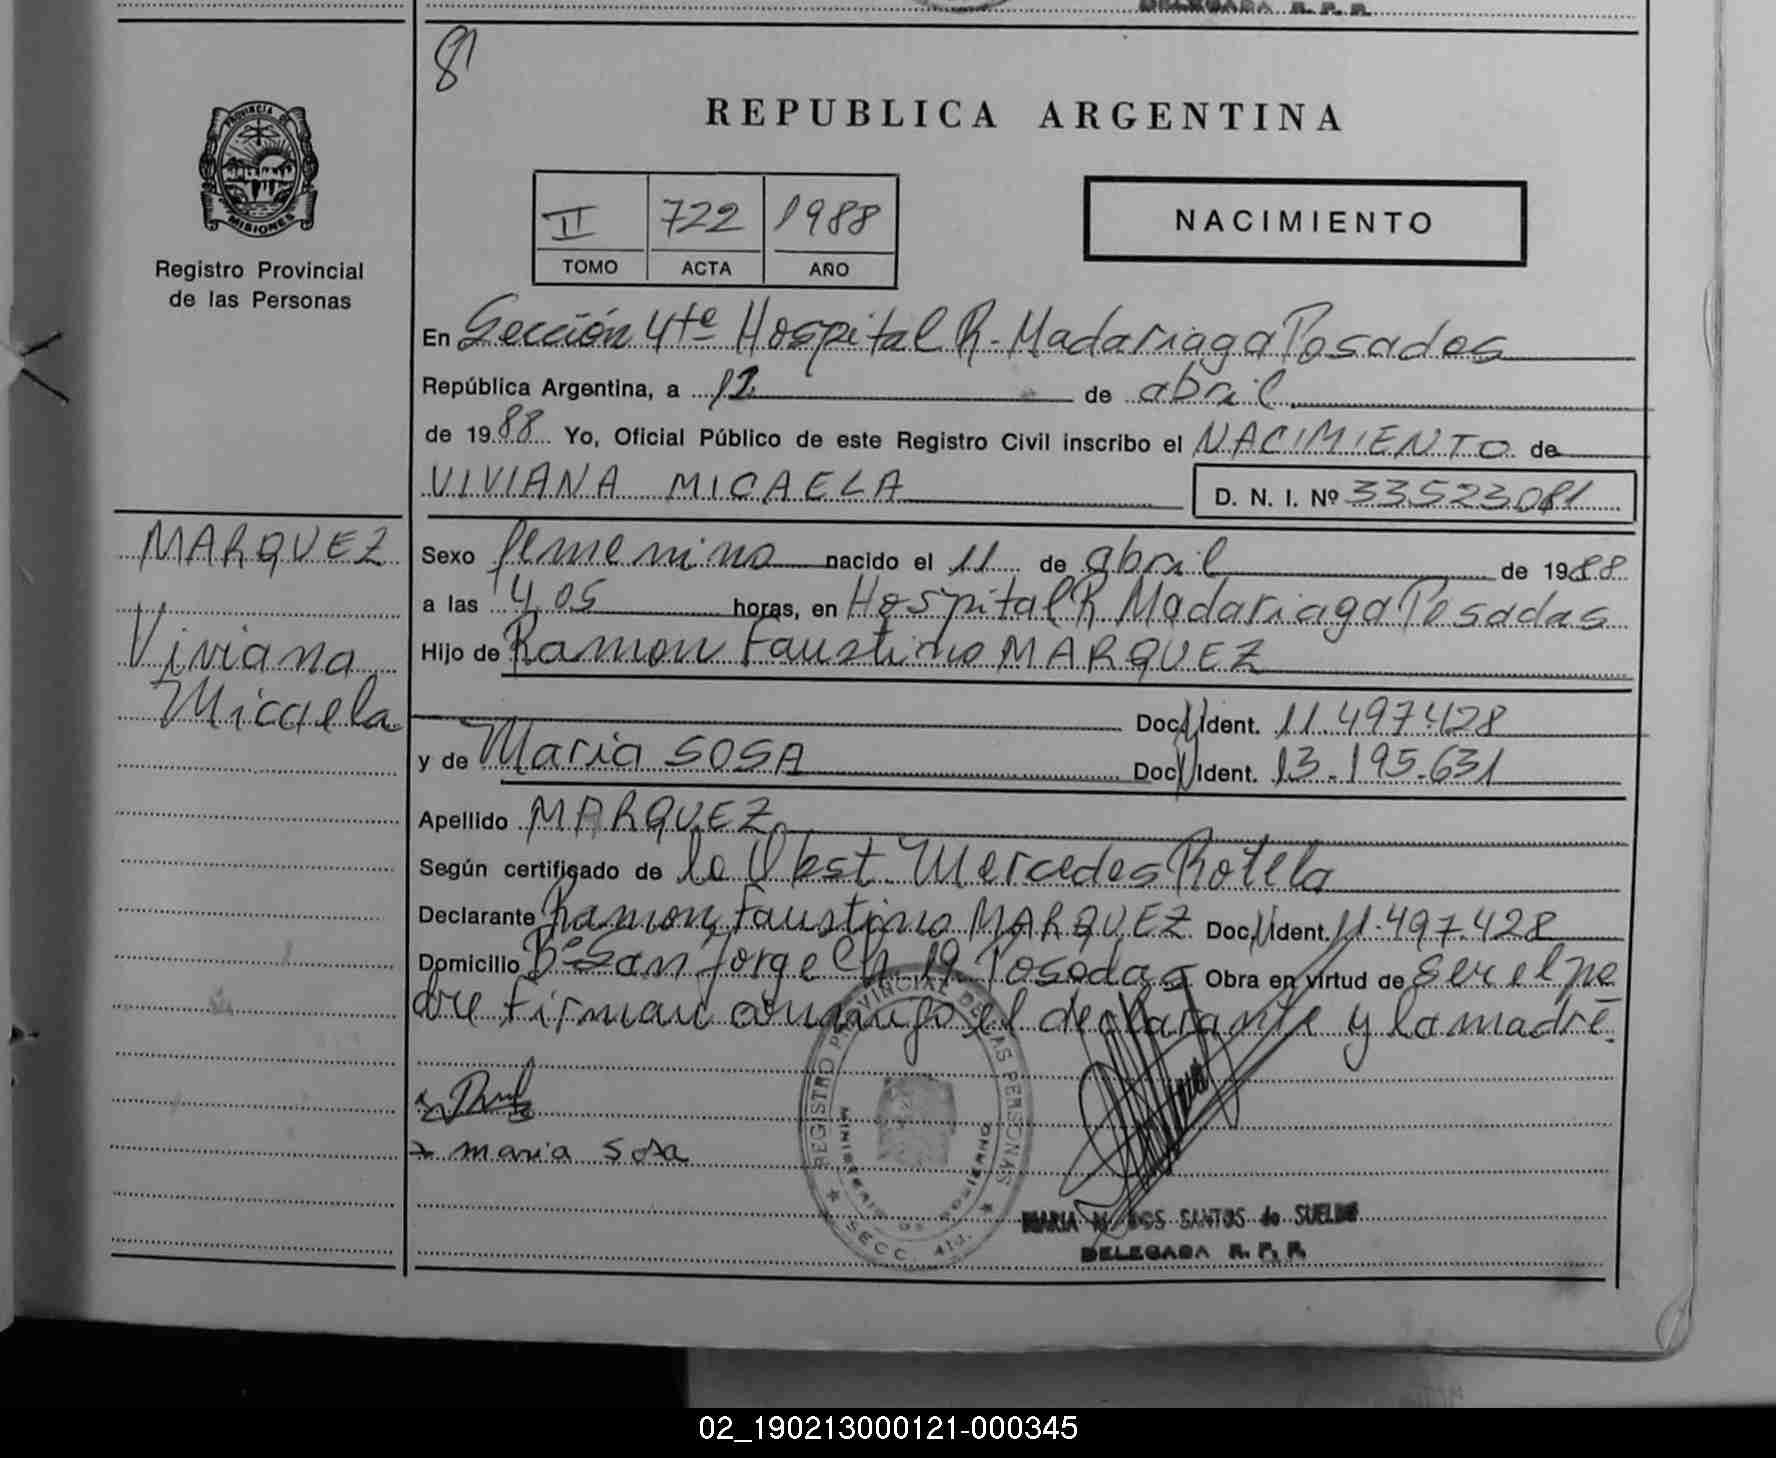 DELEGADA R. P. P.
81
PROVINCIA DE
MISIONES
Registro Provincial
de las Personas
REPUBLICA ARGENTINA
II 722 1988
TOMO ACTA AÑO
NACIMIENTO
En Sección 4te Hospital R. Madariaga Posadas
República Argentina, a 12 de abril
de 1988 Yo, Oficial Público de este Registro Civil inscribo el NACIMIENTO de
VIVIANA MICAELA D. N. I. Nº 33523081
MARQUEZ
Viviana
Micaela
Sexo femenino nacido el 11 de abril de 1988
a las 4,05 horas, en Hospital R. Madariaga Posadas
Hijo de Ramon Faustino MARQUEZ
Doc. Ident. 11.497.428
y de Maria SOSA Doc. Ident. 13.195.631
Apellido MARQUEZ
Según certificado de la Obst. Mercedes Rotela
Declarante Ramon Faustino MARQUEZ Doc. Ident. 11.497.428
Domicilio Bº San Jorge Ch 19 Posadas Obra en virtud de ser el pa
dre Firman conmigo el declarante y la madre.
x maria Sosa
REGISTRO PROVINCIAL DE LAS PERSONAS
MINISTERIO DE GOBIERNO
SECC. 4ta.
MARIA M. DOS SANTOS de SUELDO
DELEGADA R. P. P.
02_190213000121-000345